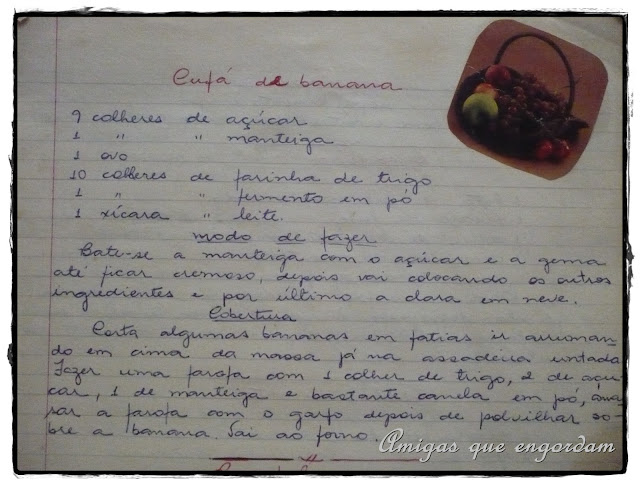 Cufá de banana
9 colheres de açúcar
1 " " manteiga
1 ovo
10 colheres de farinha de trigo
1 " " fermento em pó
1 xícara " leite.
modo de fazer
Bate-se a manteiga com o açúcar e a gema
até ficar cremoso, depois vai colocando os outros
ingredientes e por último a clara em neve.
Cobertura
Corta algumas bananas em fatias ir arruman-
do em cima da massa já na assadeira untada
Fazer uma farofa com 1 colher de trigo, 2 de açú-
car, 1 de manteiga e bastante canela em pó,
sar a farofa com o garfo depois de polvilhar so-
bre a banana. Vai ao forno.
Amigas que engordam